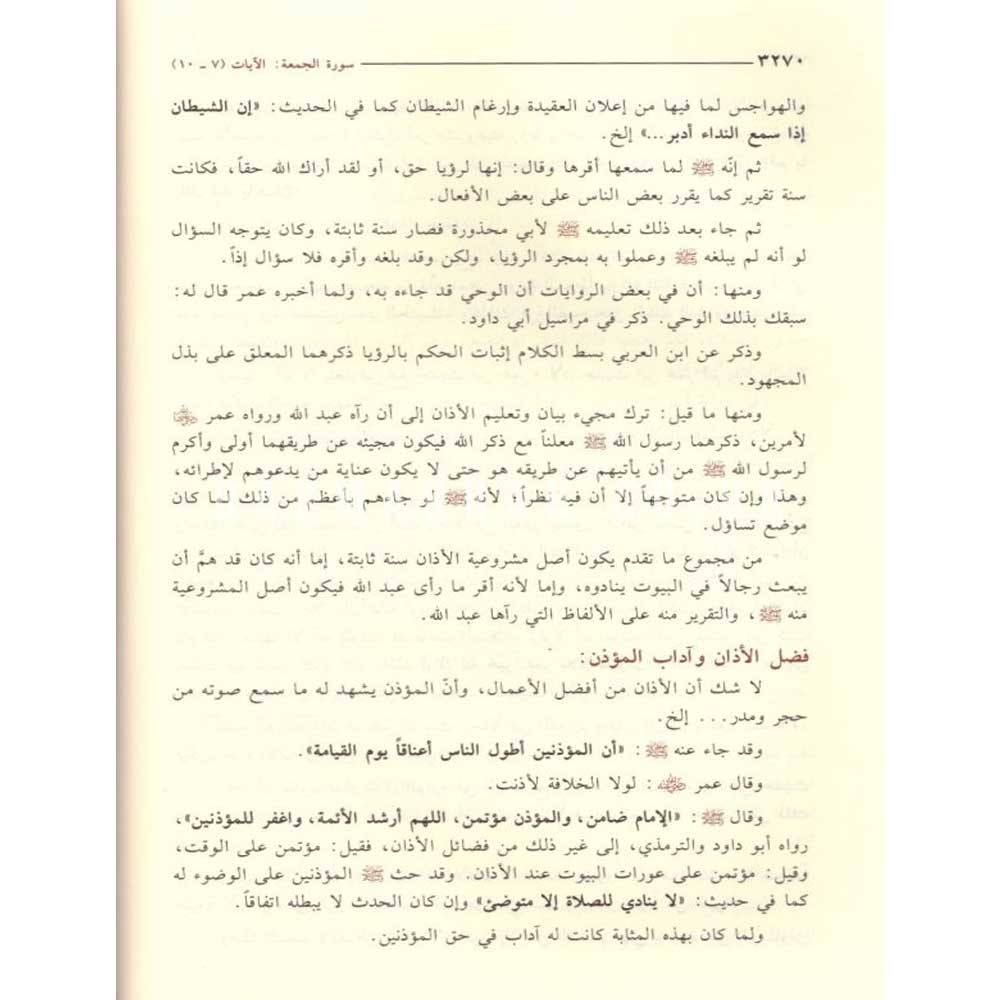 ٣٢٧٠ سورة الجمعة: الآيات (٧ ـ ١٠)
والهواجس لما فيها من إعلان العقيدة وإرغام الشيطان كما في الحديث: «إن الشيطان
إذا سمع النداء أدبر...» إلخ.
ثم إنّه ﷺ لما سمعها أقرها وقال: إنها لرؤيا حق، أو لقد أراك الله حقاً، فكانت
سنة تقرير كما يقرر بعض الناس على بعض الأفعال.
ثم جاء بعد ذلك تعليمه ﷺ لأبي محذورة فصار سنة ثابتة، وكان يتوجه السؤال
لو أنه لم يبلغه ﷺ وعملوا به بمجرد الرؤيا، ولكن وقد بلغه وأقره فلا سؤال إذاً.
ومنها: أن في بعض الروايات أن الوحي قد جاءه به، ولما أخبره عمر قال له:
سبقك بذلك الوحي. ذكر في مراسيل أبي داود.
وذكر عن ابن العربي بسط الكلام إثبات الحكم بالرؤيا ذكرهما المعلق على بذل
المجهود.
ومنها ما قيل: ترك مجيء بيان وتعليم الأذان إلى أن رآه عبد الله ورواه عمر رضي الله عنهما
لأمرين، ذكرهما رسول الله ﷺ معلناً مع ذكر الله فيكون مجيئه عن طريقهما أولى وأكرم
لرسول الله ﷺ من أن يأتيهم عن طريقه هو حتى لا يكون عناية من يدعوهم لإطرائه،
وهذا وإن كان متوجهاً إلا أن فيه نظراً؛ لأنه ﷺ لو جاءهم بأعظم من ذلك لما كان
موضع تساؤل.
من مجموع ما تقدم يكون أصل مشروعية الأذان سنة ثابتة، إما أنه كان قد همَّ أن
يبعث رجالاً في البيوت ينادوه، وإما لأنه أقر ما رأى عبد الله فيكون أصل المشروعية
منه ﷺ، والتقرير منه على الألفاظ التي رآها عبد الله.
فضل الأذان وآداب المؤذن:
لا شك أن الأذان من أفضل الأعمال، وأنّ المؤذن يشهد له ما سمع صوته من
حجر ومدر... إلخ.
وقد جاء عنه ﷺ: «أن المؤذنين أطول الناس أعناقاً يوم القيامة».
وقال عمر رضي الله عنه: لولا الخلافة لأذنت.
وقال ﷺ: «الإمام ضامن، والمؤذن مؤتمن، اللهم أرشد الأئمة، واغفر للمؤذنين»،
رواه أبو داود والترمذي، إلى غير ذلك من فضائل الأذان، فقيل: مؤتمن على الوقت،
وقيل: مؤتمن على عورات البيوت عند الأذان. وقد حث ﷺ المؤذنين على الوضوء له
كما في حديث: «لا ينادي للصلاة إلا متوضئ» وإن كان الحدث لا يبطله اتفاقاً.
ولما كان بهذه المثابة كانت له آداب في حق المؤذنين.